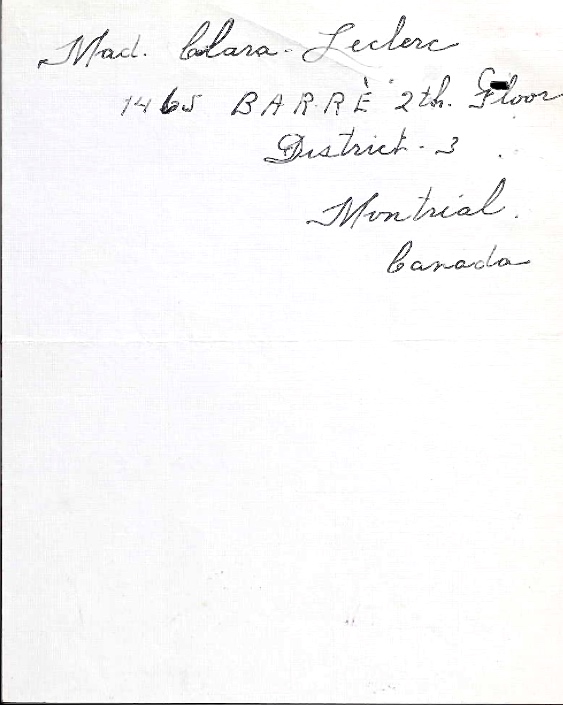 Mad. Clara. Leclerc
1465 BARRÈ 2th. Floor
District - 3
Montrial.
Canada